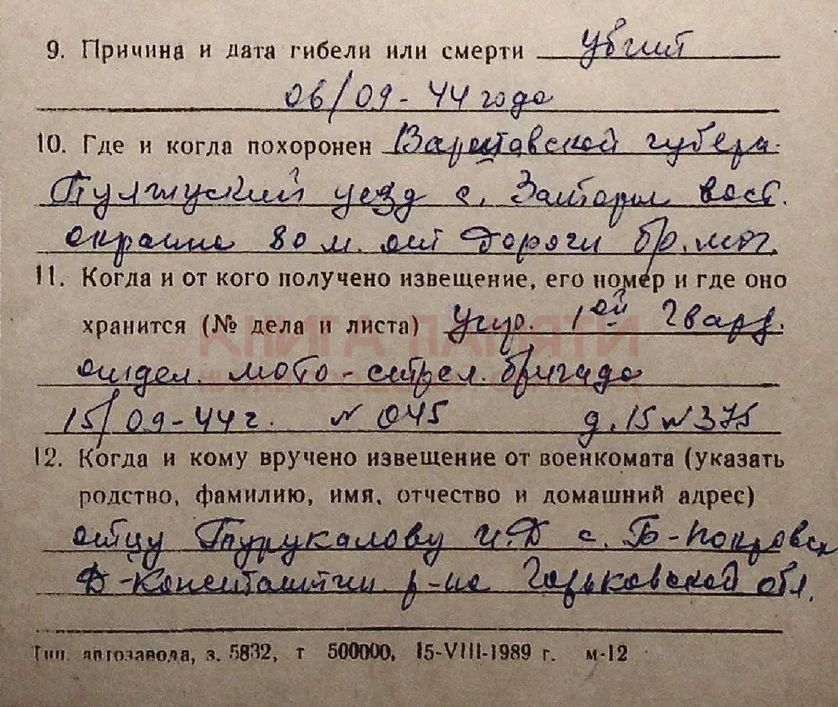 9. Причина и дата гибели или смерти убит
06/09-44 года
10. Где и когда похоронен Варшавской губерн.
уезд с. Заторы вост.
окраине 80 м. от дороги бр. мог.
11. Когда и от кого получено извещение, его номер и где оно
хранится (№ дела и листа) упр. 1ой Гвард.
КНИГА ПАМЯТИ
отдел. мото-стрел. бригада
15/09-44 г. N 045 д. 15 N 375
12. Когда и кому вручено извещение от военкомата (указать
родство, фамилию, имя, отчество и домашний адрес)
отцу Турукалову И.Д с. Б-Покровск
Д-Константин р-на Горьковской обл.
Тип. автозавода, з. 5832, т 500000, 15-VIII-1989 г. м-12